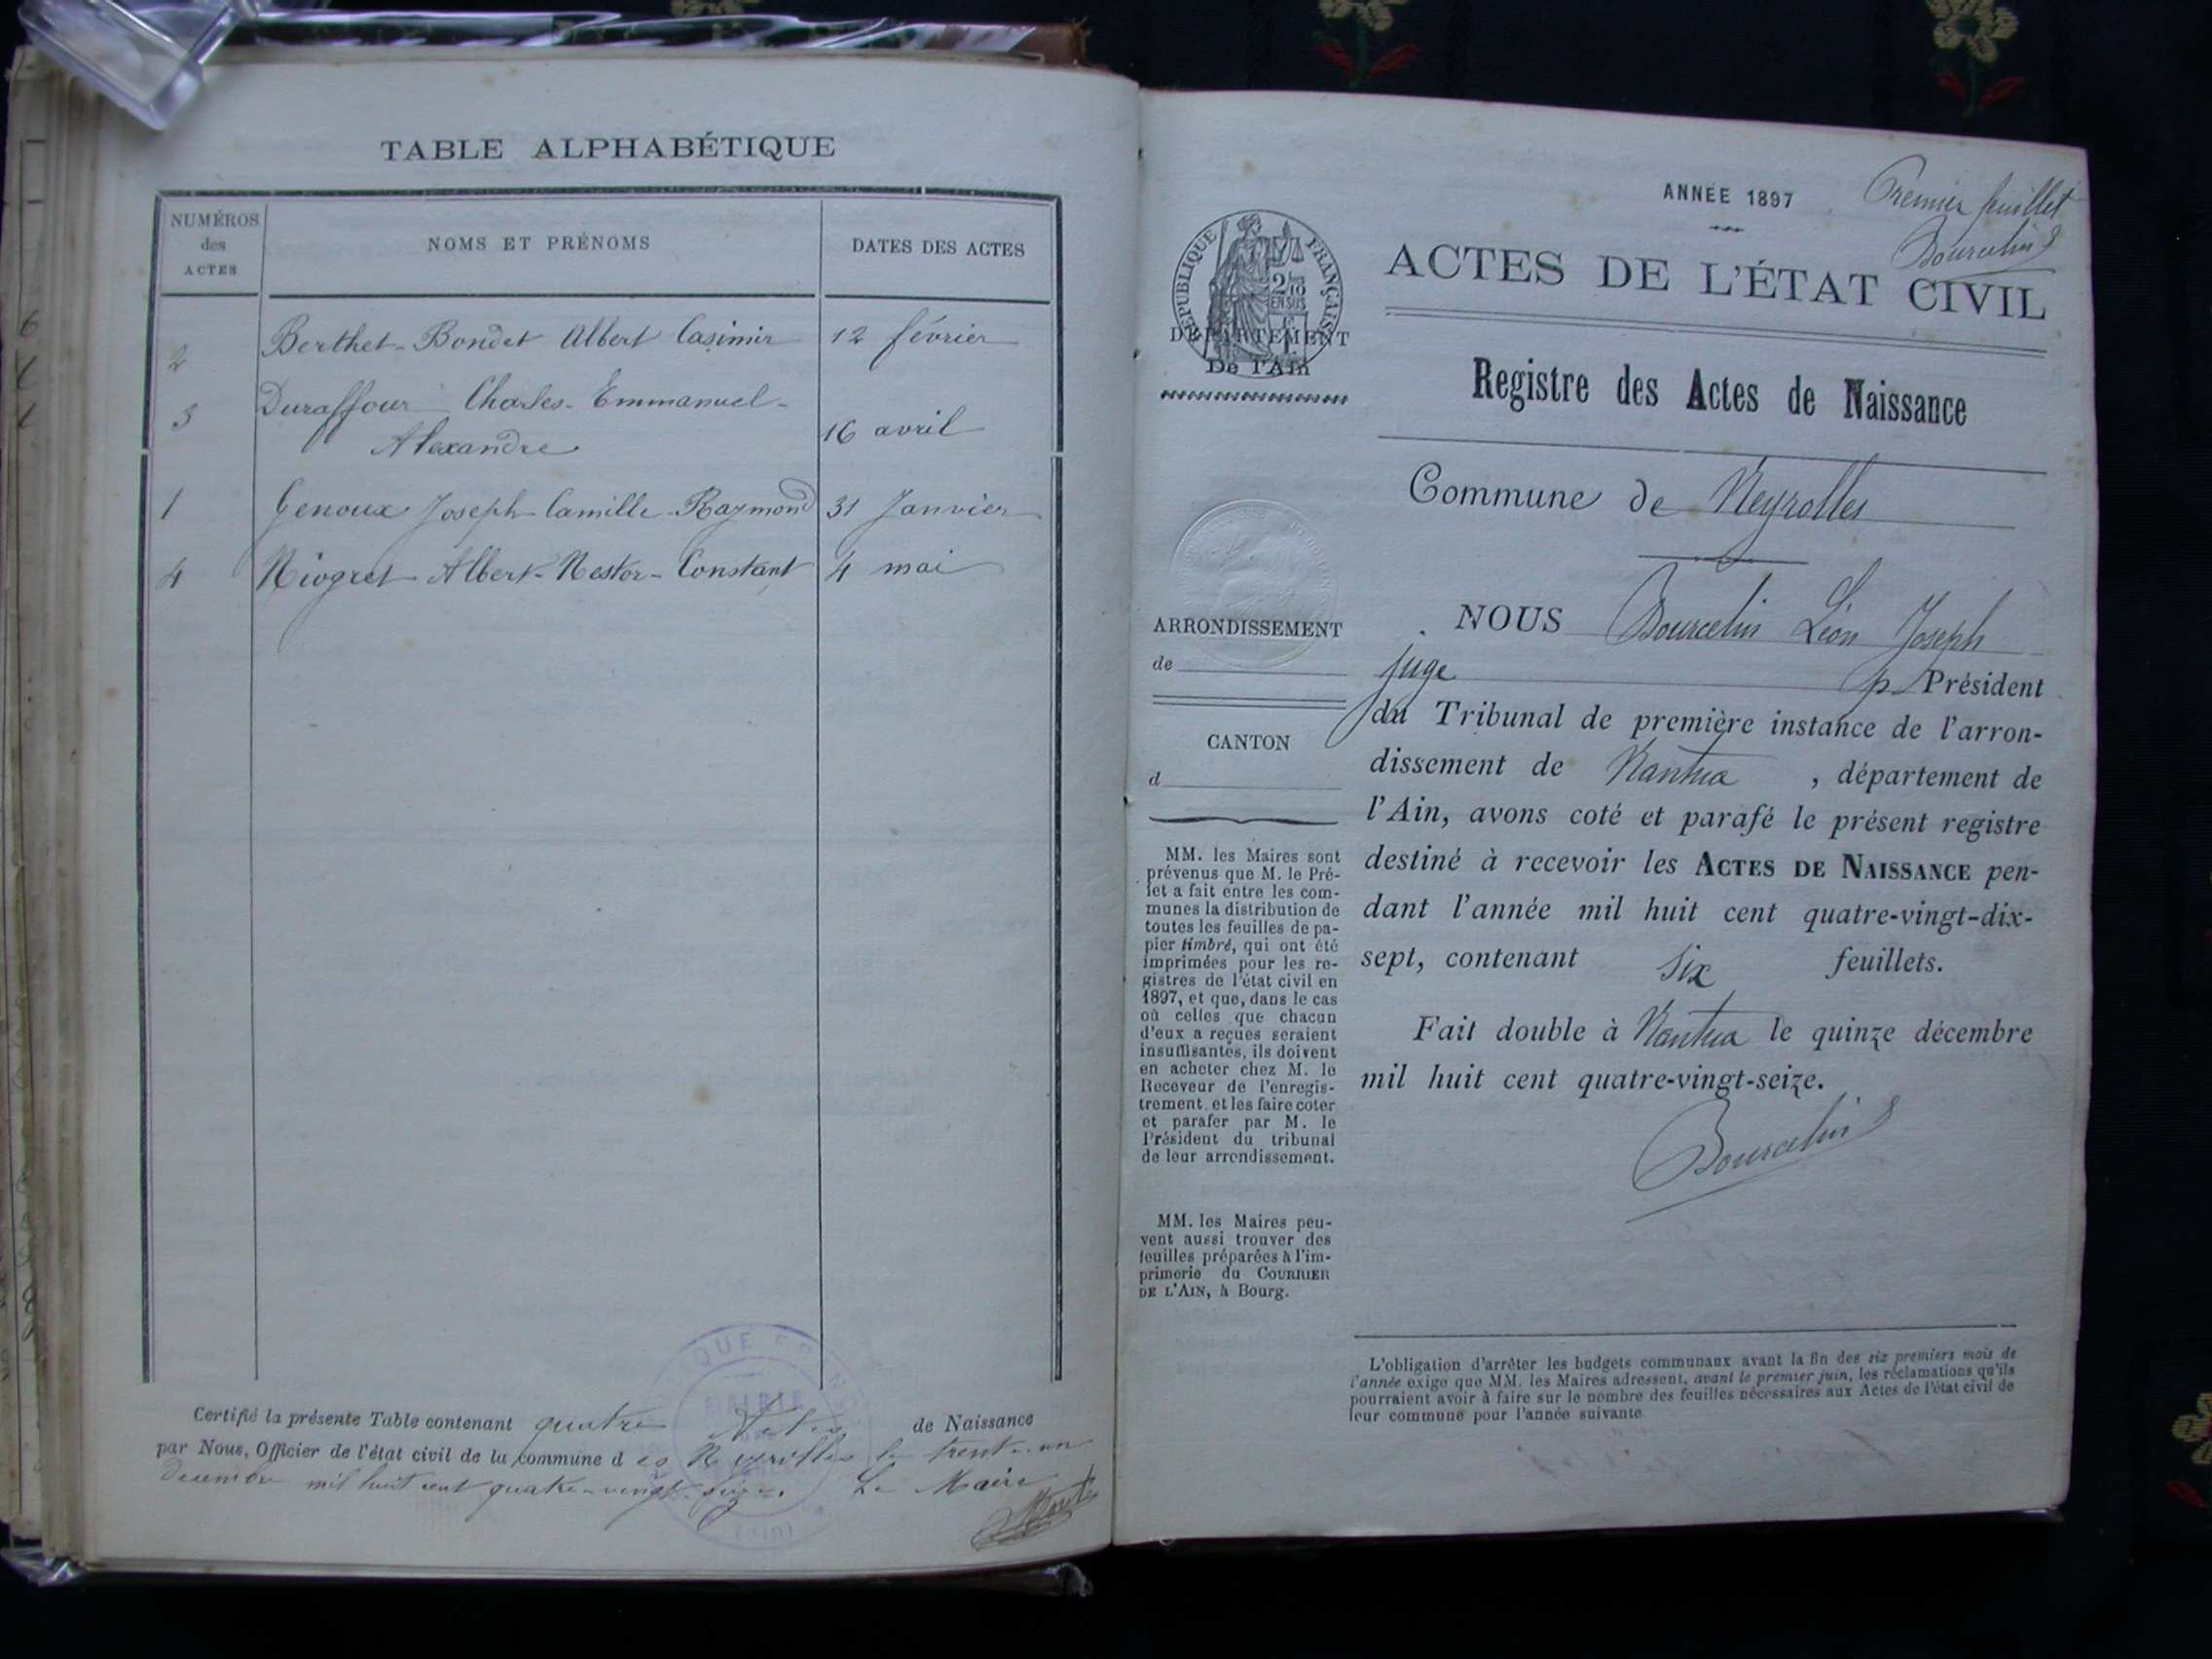 TABLE ALPHABÉTIQUE
NUMÉROS
des
ACTES
NOMS ET PRÉNOMS
DATES DES ACTES
2 Berthet-Bondet Albert Casimir 12 février
3 Duraffour Charles-Emmanuel-
Alexandre 16 avril
1 Genoux Joseph-Camille-Raymond 31 Janvier
4 Niogret Albert-Nestor-Constant 4 mai
Certifié la présente Table contenant quatre Actes de Naissance
par Nous, Officier de l'état civil de la commune d es Neyrolles le trente-un
décembre mil huit cent quatre-vingt-seize. Le Maire
MAIRIE
(Ain)
ANNÉE 1897
Premier feuillet
Bourcelin
RÉPUBLIQUE FRANÇAISE
2/10
EN SUS
DÉPARTEMENT
De l'Ain
ACTES DE L'ÉTAT CIVIL
Registre des Actes de Naissance
Commune de Neyrolles
ARRONDISSEMENT
de
CANTON
d
MM. les Maires sont
prévenus que M. le Pré-
fet a fait entre les com-
munes la distribution de
toutes les feuilles de pa-
pier timbré, qui ont été
imprimées pour les re-
gistres de l'état civil en
1897, et que, dans le cas
où celles que chacun
d'eux a reçues seraient
insuffisantes, ils doivent
en acheter chez M. le
Receveur de l'enregis-
trement et les faire coter
et parafer par M. le
Président du tribunal
de leur arrondissement.
MM. les Maires peu-
vent aussi trouver des
feuilles préparées à l'im-
primerie du COURRIER
DE L'AIN, à Bourg.
NOUS Bourcelin Léon Joseph
juge p. Président
du Tribunal de première instance de l'arron-
dissement de Nantua, département de
l'Ain, avons coté et parafé le présent registre
destiné à recevoir les ACTES DE NAISSANCE pen-
dant l'année mil huit cent quatre-vingt-dix-
sept, contenant six feuillets.
Fait double à Nantua le quinze décembre
mil huit cent quatre-vingt-seize.
Bourcelin
L'obligation d'arrêter les budgets communaux avant la fin des six premiers mois de
l'année exige que MM. les Maires adressent, avant le premier juin, les réclamations qu'ils
pourraient avoir à faire sur le nombre des feuilles nécessaires aux Actes de l'état civil de
leur commune pour l'année suivante.